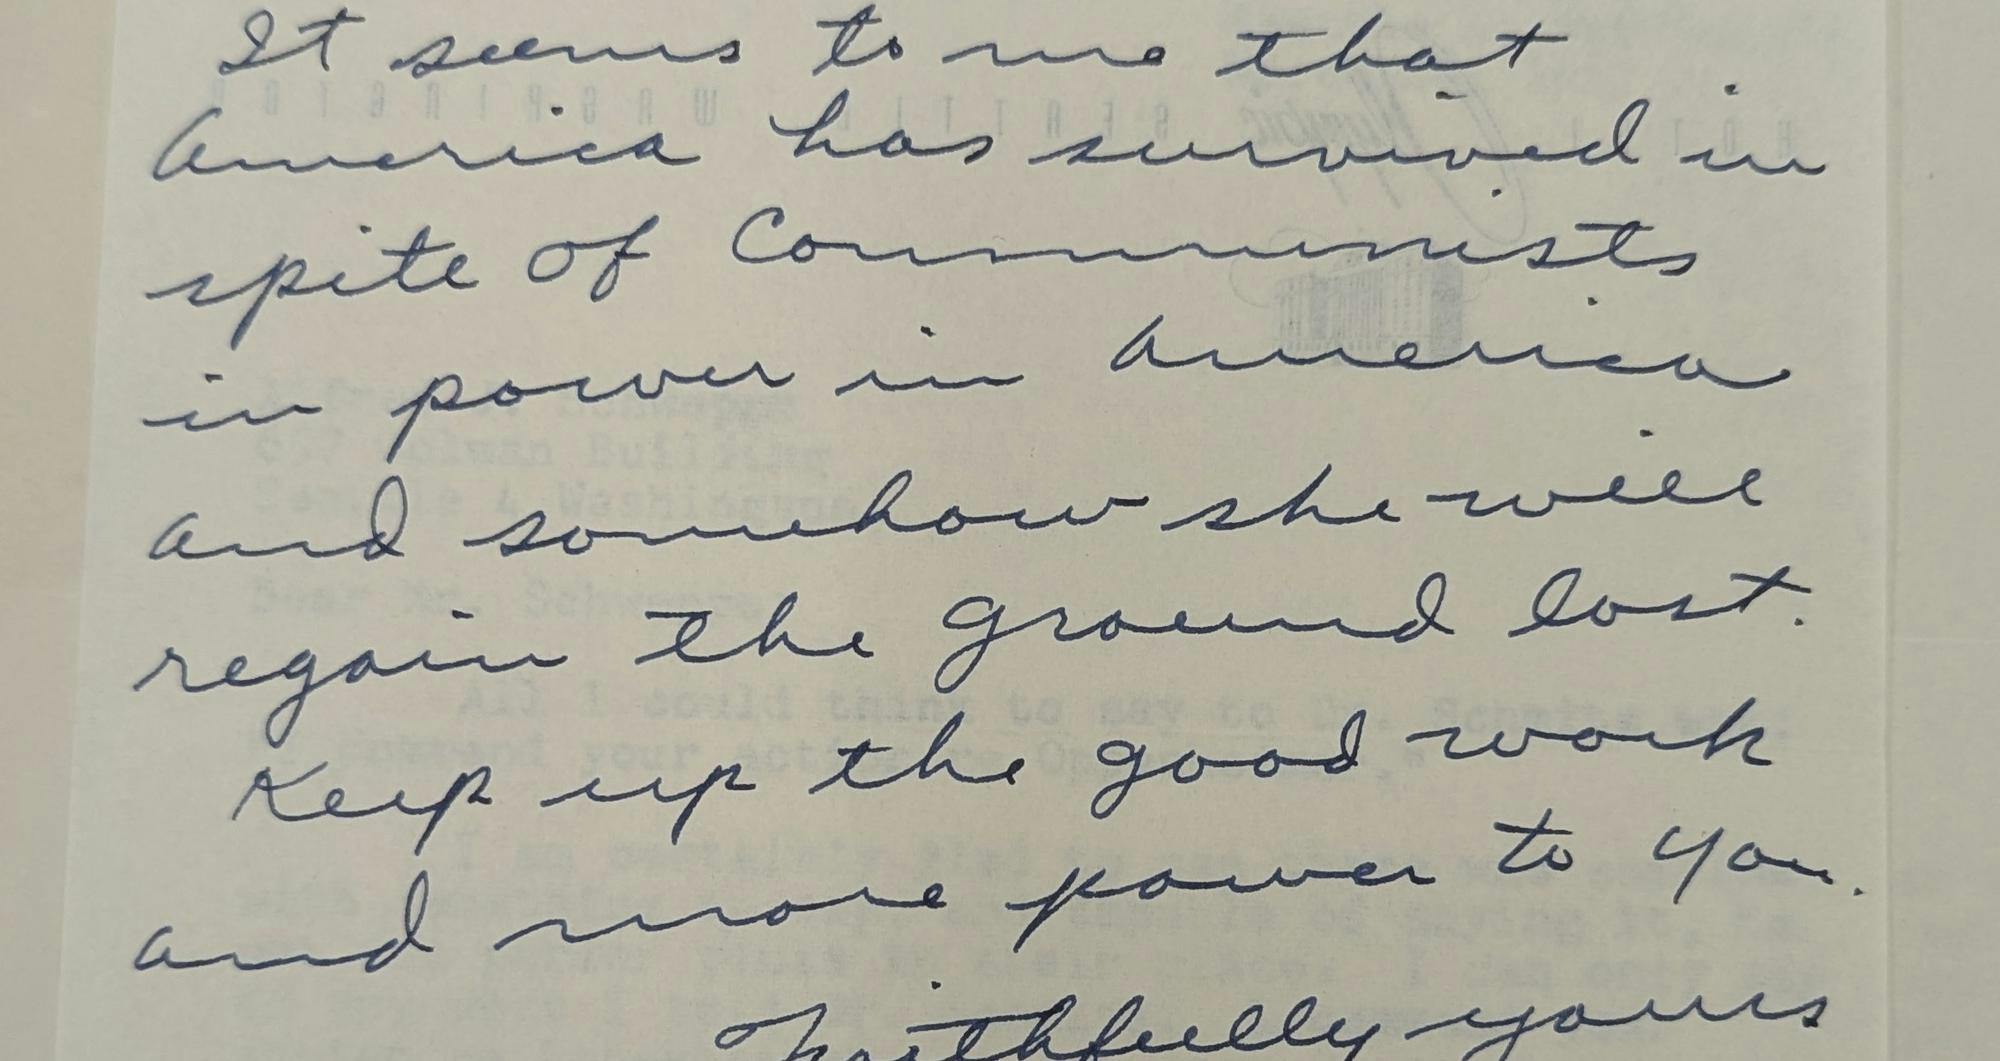 It seems to me that
America has survived in
spite of Communists
in power in America
and somehow she will
regain the ground lost.
Keep up the good work
and more power to you.
Faithfully yours